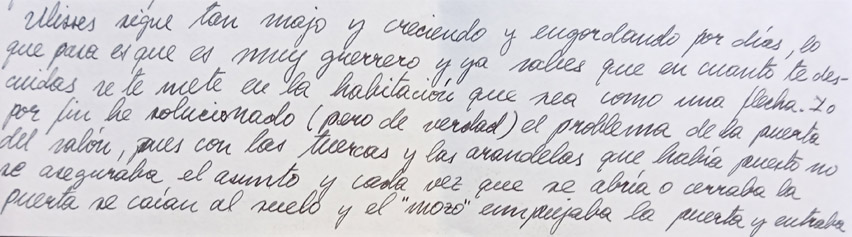 Ulisses sigue tan majo y creciendo y engordando por días, lo
que pasa es que es muy guerrero y ya sabes que en cuanto te des-
cuidas se te mete en la habitación que sea como una flecha. Yo
por fin he solucionado (pero de verdad) el problema de la puerta
del salón, pues con las tuercas y las arandelas que había puesto no
se aseguraba el asunto y cada vez que se abría o cerraba la
puerta se caían al suelo y el "mozo" empujaba la puerta y entraba